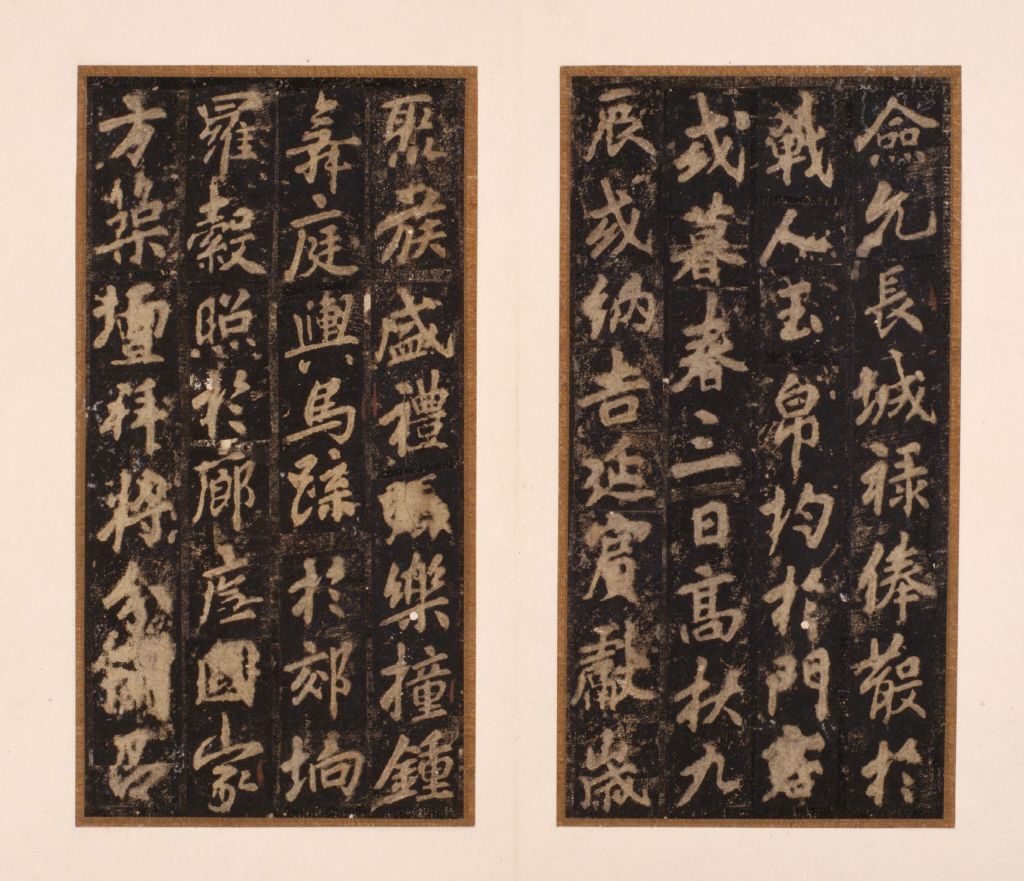 僉允長城祿俸散於
戰人玉帛均於門客
或暮春三日高秋九
辰或納吉延賓獻歲
聚族盛禮樂撞鍾
舞庭輿馬蹂於郊坰
羅縠照於廊廡國家
方築壇拜將分召